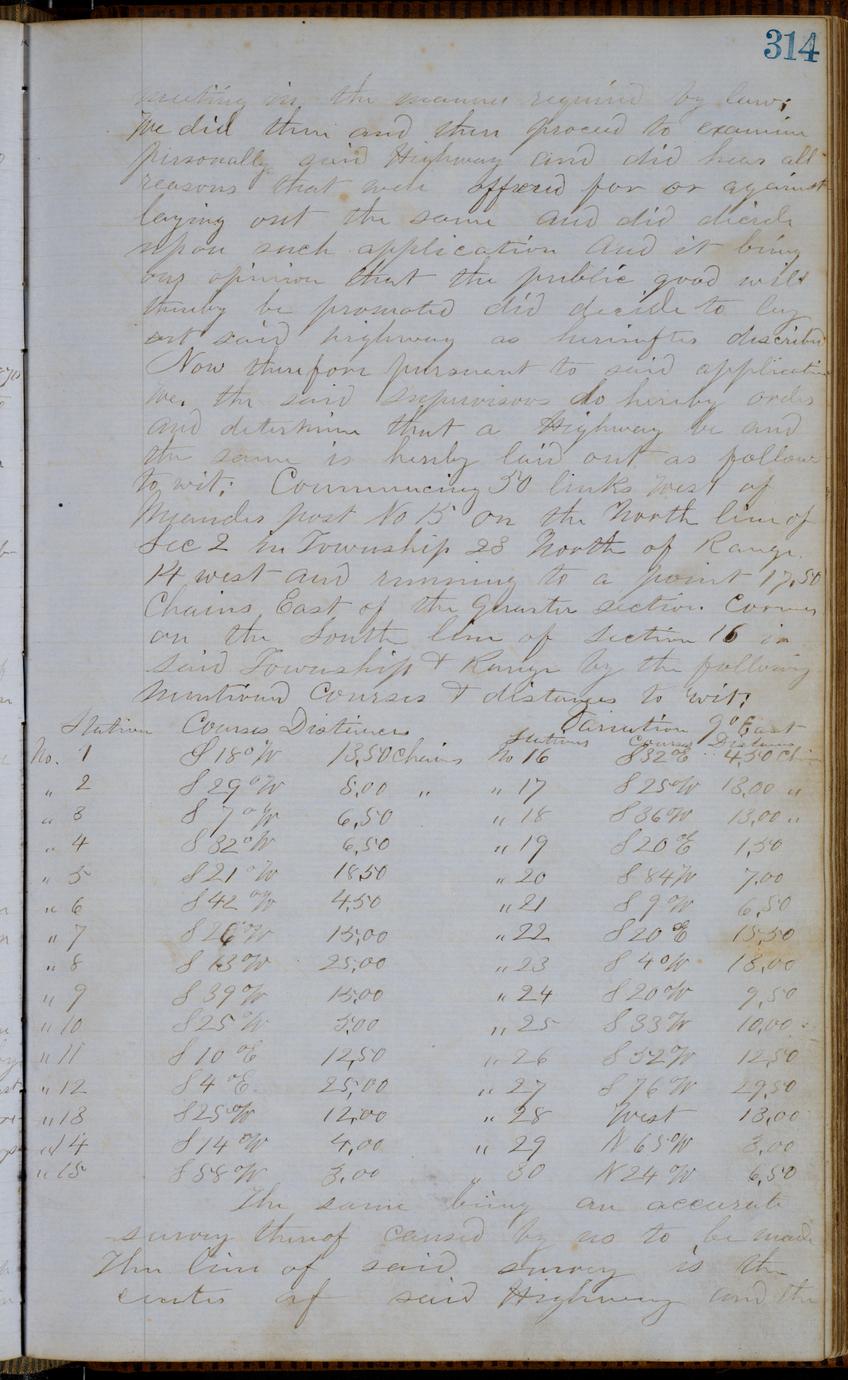 314
meeting in the manner required by law;
we did then and there proceed to examine
personally said Highway and did hear all
reasons that were offered for or against
laying out the same and did decide
upon such application And it being
our opinion that the public good will
thereby be promoted did decide to lay
out said highway as herinafter described
Now therefore pursuant to said application
we. the said Supervisors do hereby order
and determine that a Highway be and
the same is hereby laid out as follows
to wit: Commencing 50 links west of
Meander post No 15 on the North line of
Sec 2 in Township 28 North of Range
14 west and running to a point 17,50
Chains East of the Quarter section Corner
on the South line of Section 16 in
said Township & Range by the following
mentioned Courses & distances to wit:
Station Courses Distances Variation 9° East
Stations Courses Distans
No. 1 S 18° W 13,50 Chains No 16 S 32° E 4,50 Ch
" 2 S 29° W 5,00 " " 17 S 25° W 13,00 "
" 3 S 7° W 6,50 " 18 S 36° W 13,00 "
" 4 S 32° W 6,50 " 19 S 20° E 1,50
" 5 S 21° W 18,50 " 20 S 84 W 7,00
" 6 S 42° W 4,50 " 21 S 9° W 6,50
" 7 S 26° W 15,00 " 22 S 20° E 15,50
" 8 S 13° W 25,00 " 23 S 4° W 18,00
" 9 S 39° W 15,00 " 24 S 20° W 9,50
" 10 S 25° W 5,00 " 25 S 33° W 10,00
" 11 S 10° E 12,50 " 26 S 52° W 12,50
" 12 S 4° E 25,00 " 27 S 76° W 29,50
" 13 S 25° W 12,00 " 28 West 13,00
" 14 S 14° W 4,00 " 29 N 65° W 3,00
" 15 S 58° W 3,00 " 30 N 24° W 6,50
The same being an accurate
survey thereof caused by us to be made
The line of said survey is the
center of said Highway and the